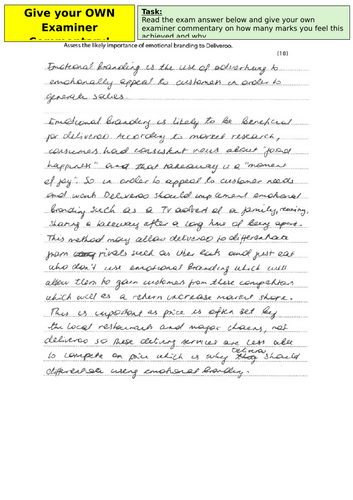 Give your OWN
Examiner
Commentary!
Task:
Read the exam answer below and give your own
examiner commentary on how many marks you feel this
achieved and why
Assess the likely importance of emotional branding to Deliveroo.
(10)
Emotional branding is the use of advertising to
emotionally appeal to customers in order to
generate sales.
Emotional branding is likely to be beneficial
for deliveroo According to market research,
consumers had consistent views about "food
happiness" and that takeaway is a "moment
of joy". So in order to appeal to customer needs
and want Deliveroo should implement emotional
branding such as a TV advert of a family,
sharing a takeaway after a long hour of being apart.
This method may allow deliveroo to differentiate
from rivals such as Uber Eats and just eat
who don't use emotional branding which will
allow them to gain customers from these competitors
which will as a return increase market share.
This is important as price is often set by
the local restaurants and major chains, not
deliveroo so these delivery services are less able
to compete on price which is why deliveroo should
differentiate using emotional branding.